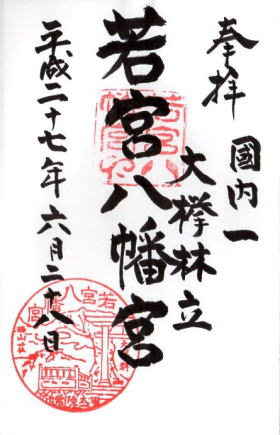 奉拝
國内一
大欅林立
若宮八幡宮
平成二十七年六月二十八日
若宮八幡宮